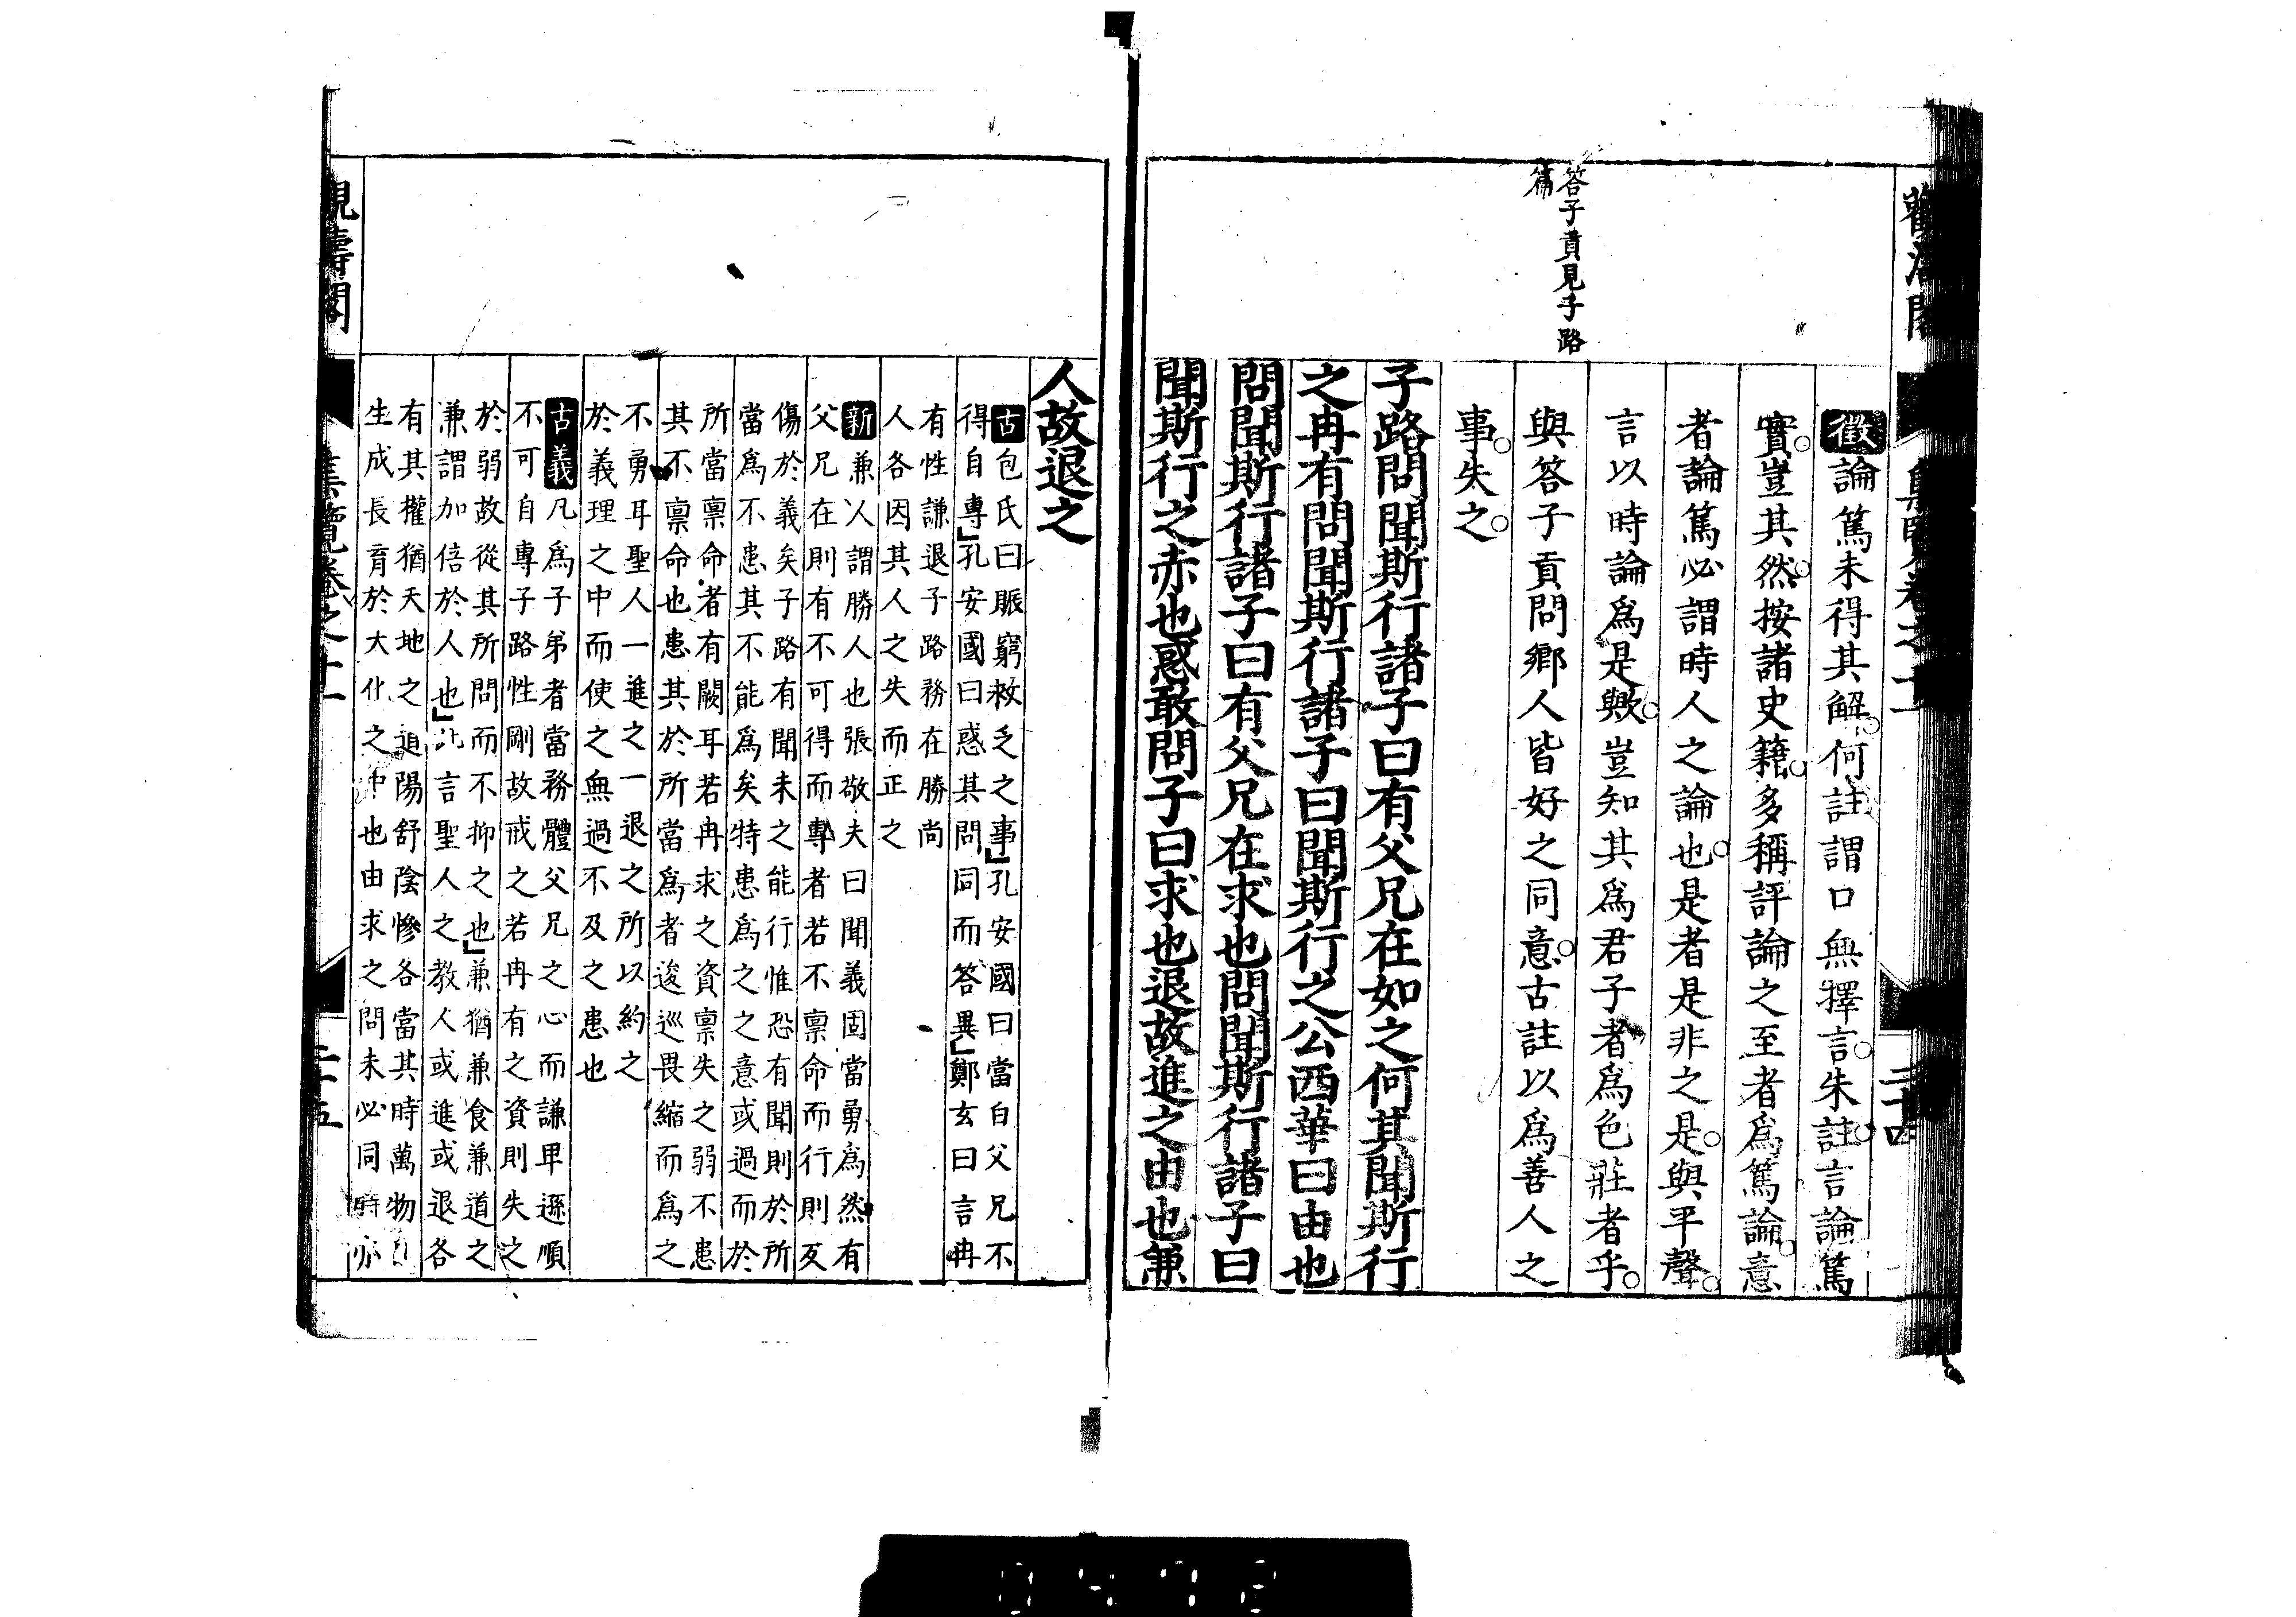 答子貢見子路
篇
徵論篤未得其解何註謂口無擇言朱註言論篤
實豈其然按諸史籍多稱評論之至者爲篤論意
者論篤必謂時人之論也是者是非之是與平聲
言以時論爲是歟豈知其爲君子者爲色莊者乎
與答子貢問鄉人皆好之同意古註以爲善人之
事失之
子路問聞斯行諸子曰有父兄在如之何其聞斯行
之冉有問聞斯行諸子曰聞斯行之公西華曰由也
問聞斯行諸子曰有父兄在求也問聞斯行諸子曰
聞斯行之赤也惑敢問子曰求也退故進之由也兼
人故退之
古包氏曰賑窮救乏之事孔安國曰當白父兄不
得自專孔安國曰惑其問同而答異鄭玄曰言冉
有性謙退子路務在勝尚
人各因其人之失而正之
新兼人謂勝人也張敬夫曰聞義固當勇爲然有
父兄在則有不可得而專者若不稟命而行則反
傷於義矣子路有聞未之能行惟恐有聞則於所
當爲不患其不能爲矣特患爲之之意或過而於
所當稟命者有闕耳若冉求之資稟失之弱不患
其不稟命也患其於所當爲者逡巡畏縮而爲之
不勇耳聖人一進之一退之所以約之
於義理之中而使之無過不及之患也
古義凡爲子弟者當務體父兄之心而謙卑遜順
不可自專子路性剛故戒之若冉有之資則失之
於弱故從其所問而不抑之也兼猶兼食兼道之
兼謂加倍於人也此言聖人之教人或進或退各
有其權猶天地之道陽舒陰慘各當其時萬物
生成長育於大化之中也由求之問未必同時亦
觀濤閣
集覽卷之十一
二十四
二十五